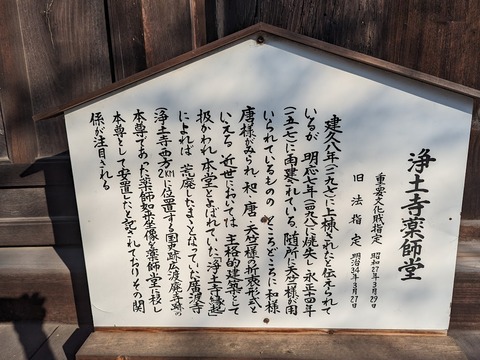 浄土寺薬師堂
重要文化財指定 昭和27年3月29日
旧法指定 明治34年3月27日
建久八年(一一九七)に上棟されたと伝えられて
いるが 明応七年(一四九八)焼失し永正十四年
(一五一七)に再建されている。随所に天竺様が用
いられているものの ところどころに和様
唐様がみられ、和・唐・天竺様の折衷形式と
いえる。近世においては 主格的建築として
扱かわれ、本堂とよばれていた。「浄土寺縁起」
によれば 荒廃したままとなっていた広渡寺
(浄土寺西方2kmに位置する国史跡広渡廃寺跡の
本尊であった薬師如来坐像を薬師堂に移し
本尊として安置したと記されておりその関
係が注目される